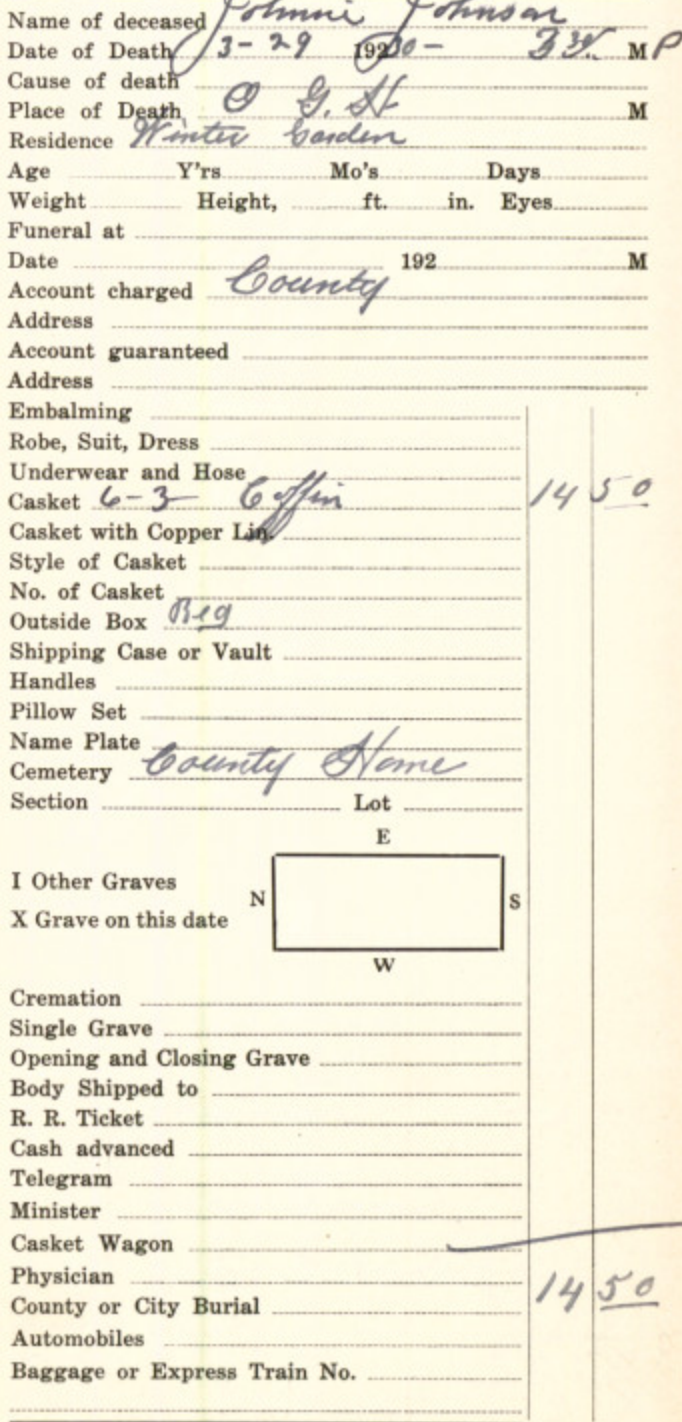 Name of deceased Johnnie Johnson
Date of Death 3-29 19230- 3 30 M P
Cause of death
Place of Death O G. H M
Residence Winter Garden
Age Y'rs Mo's Days
Weight Height, ft. in. Eyes
Funeral at
Date 192 M
Account charged County
Address
Account guaranteed
Address
Embalming
Robe, Suit, Dress
Underwear and Hose
Casket 6-3 Coffin 14 50
Casket with Copper Lin.
Style of Casket
No. of Casket
Outside Box Reg
Shipping Case or Vault
Handles
Pillow Set
Name Plate
Cemetery County Home
Section Lot
E
I Other Graves
N S
X Grave on this date
W
Cremation
Single Grave
Opening and Closing Grave
Body Shipped to
R. R. Ticket
Cash advanced
Telegram
Minister
Casket Wagon
Physician
County or City Burial 14 50
Automobiles
Baggage or Express Train No.